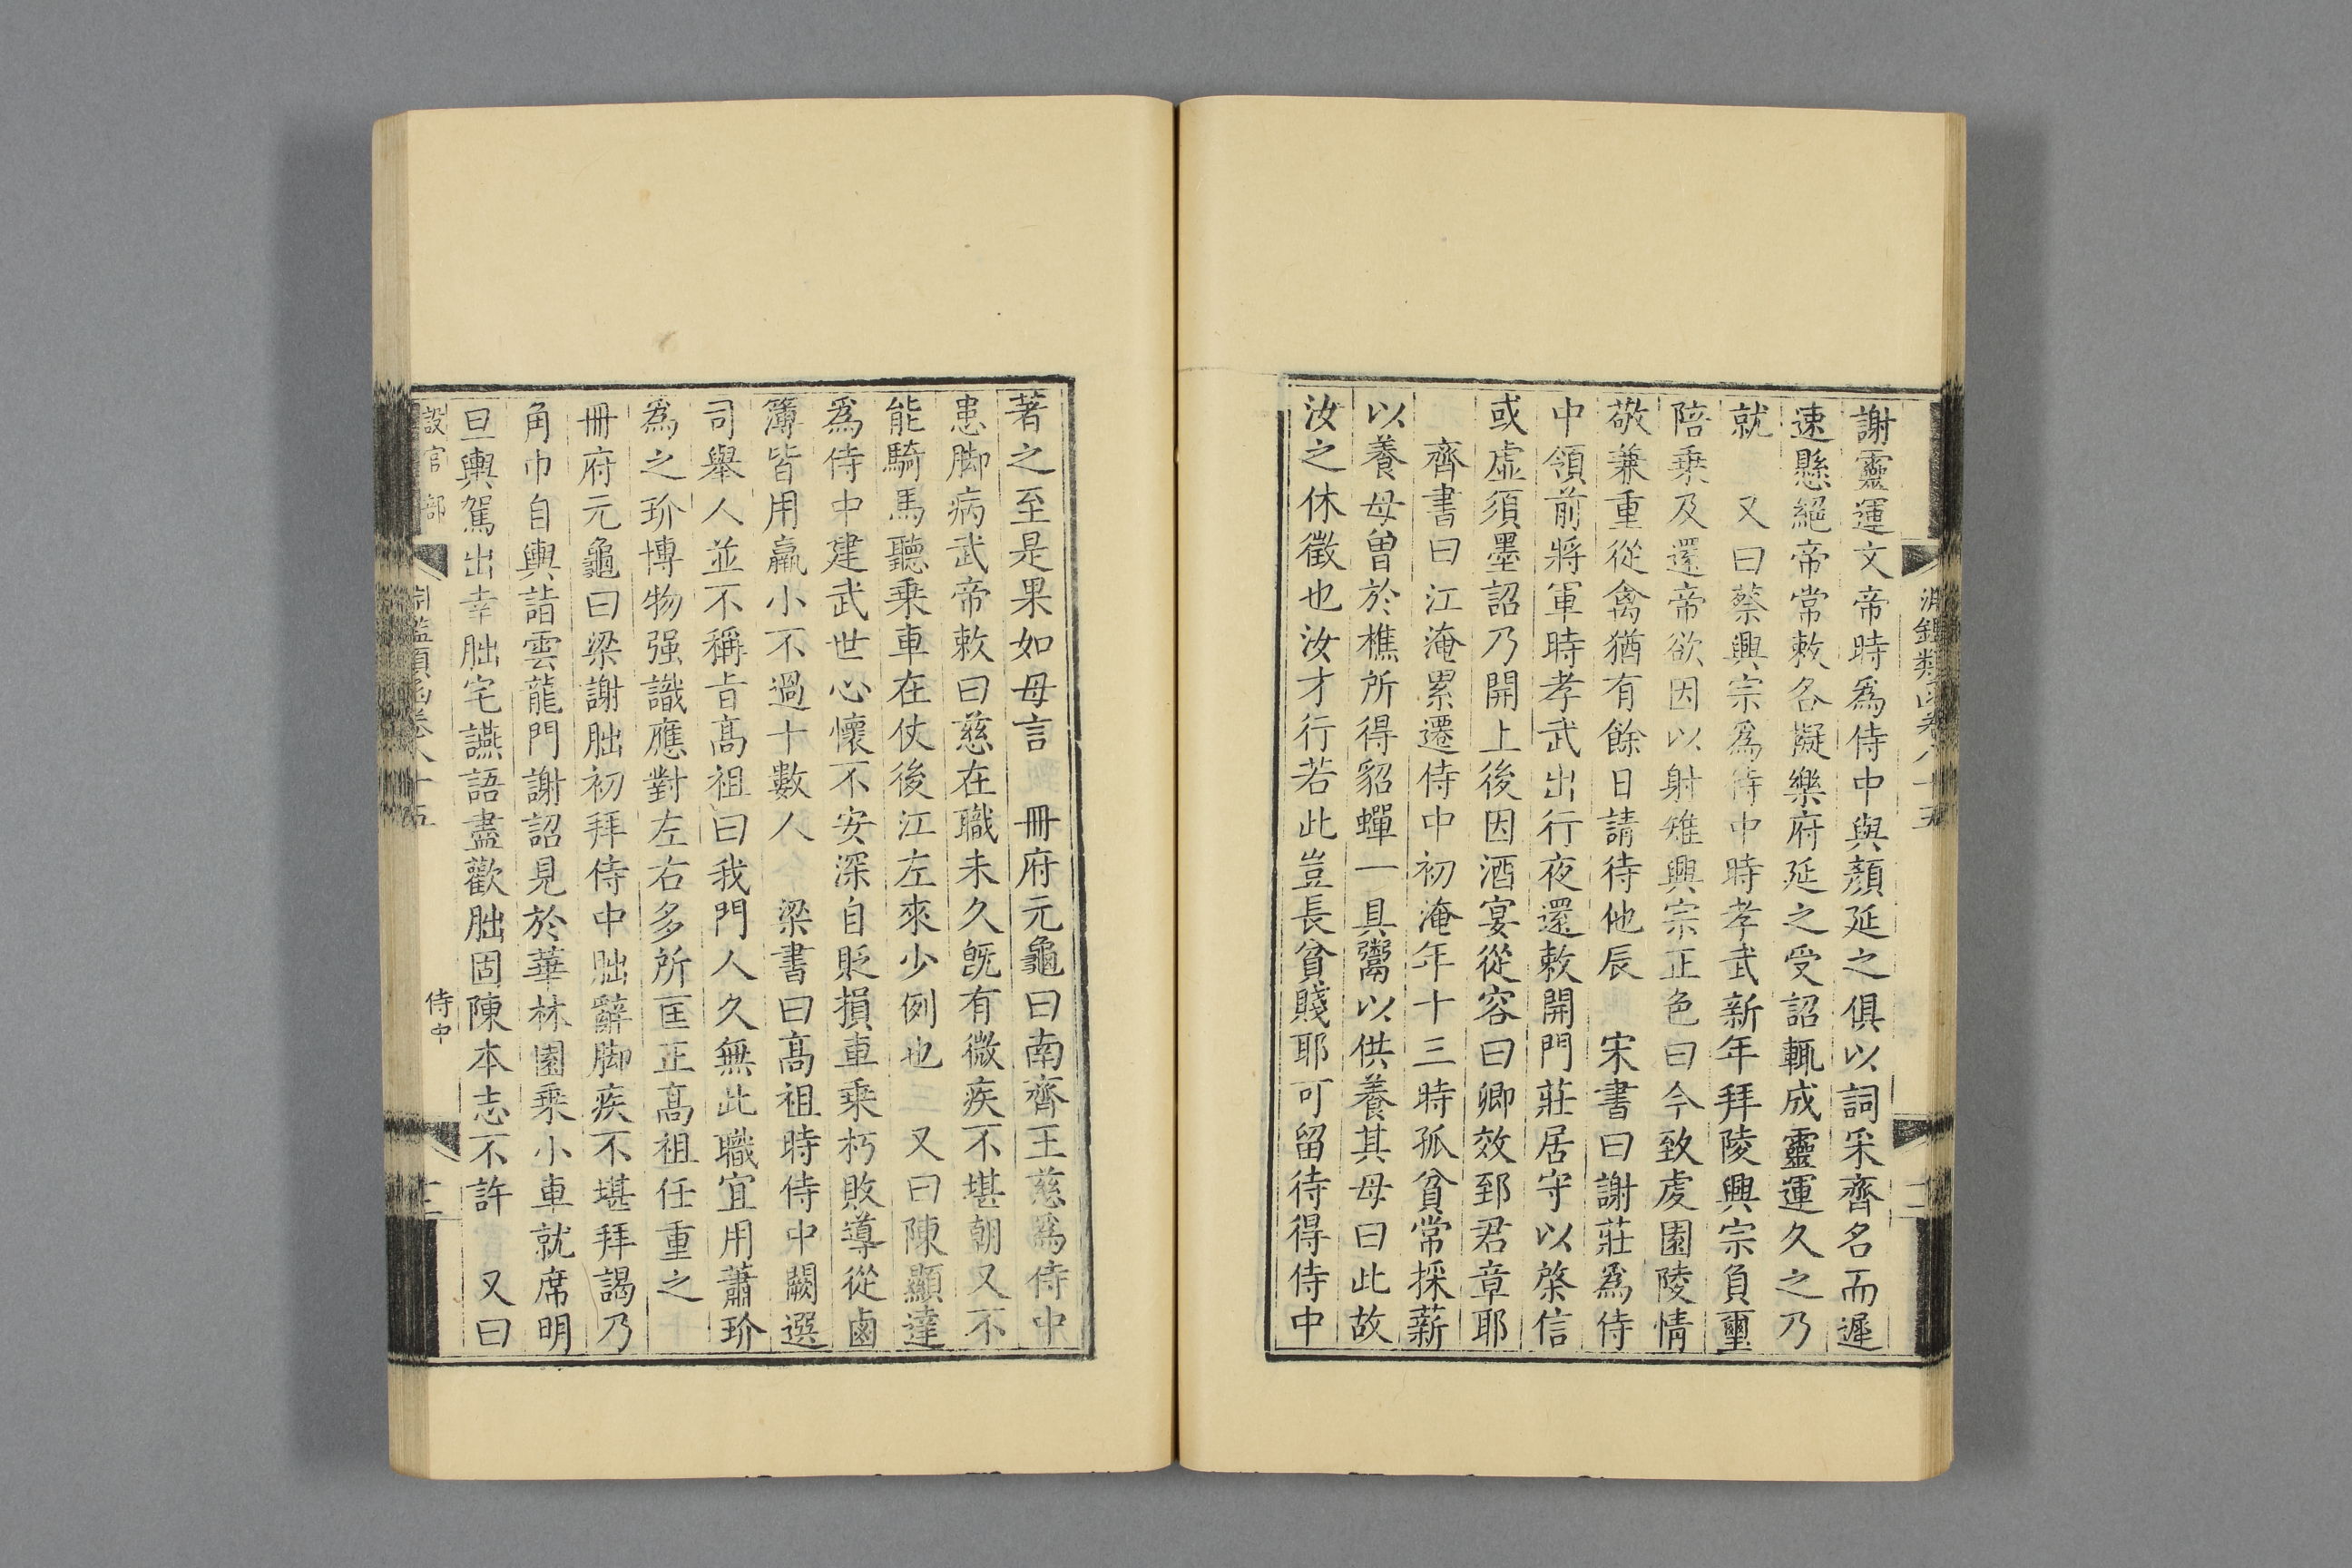 淵鑑類函卷八十五
謝靈運文帝時爲侍中與顏延之俱以詞采齊名而遲
速懸絕帝常敕各擬樂府延之受詔輒成靈運久之乃
就　又曰蔡興宗爲侍中時孝武新年拜陵興宗負璽
陪乗及還帝欲因以射雉興宗正色曰今致虔園陵情
敬兼重從禽猶有餘日請待他辰　宋書曰謝莊爲侍
中領前將軍時孝武出行夜還敕開門莊居守以棨信
或虛須墨詔乃開上後因酒宴從容曰卿效郅君章耶
齊書曰江淹累遷侍中初淹年十三時孤貧常採薪
以養母曾於樵所得貂蟬一具鬻以供養其母曰此故
汝之休徵也汝才行若此豈長貧賤耶可留待得侍中
著之至是果如母言　冊府元龜曰南齊王慈爲侍中
患脚病武帝敕曰慈在職未久旣有微疾不堪朝又不
能騎馬聽乗車在仗後江左來少例也　又曰陳顯達
爲侍中建武世心懷不安深自貶損車乗朽敗導從鹵
簿皆用羸小不過十數人　梁書曰髙祖時侍中闕選
司舉人並不稱旨髙祖曰我門人久無此職宜用蕭玠
爲之玠博物强識應對左右多所匡正髙祖任重之
冊府元龜曰梁謝朏初拜侍中朏辭脚疾不堪拜謁乃
角巾自輿詣雲龍門謝詔見於華林園乗小車就席明
旦輿駕出幸朏宅讌語盡歡朏固陳本志不許　又曰
設官部
淵鑑類函卷八十五
侍中